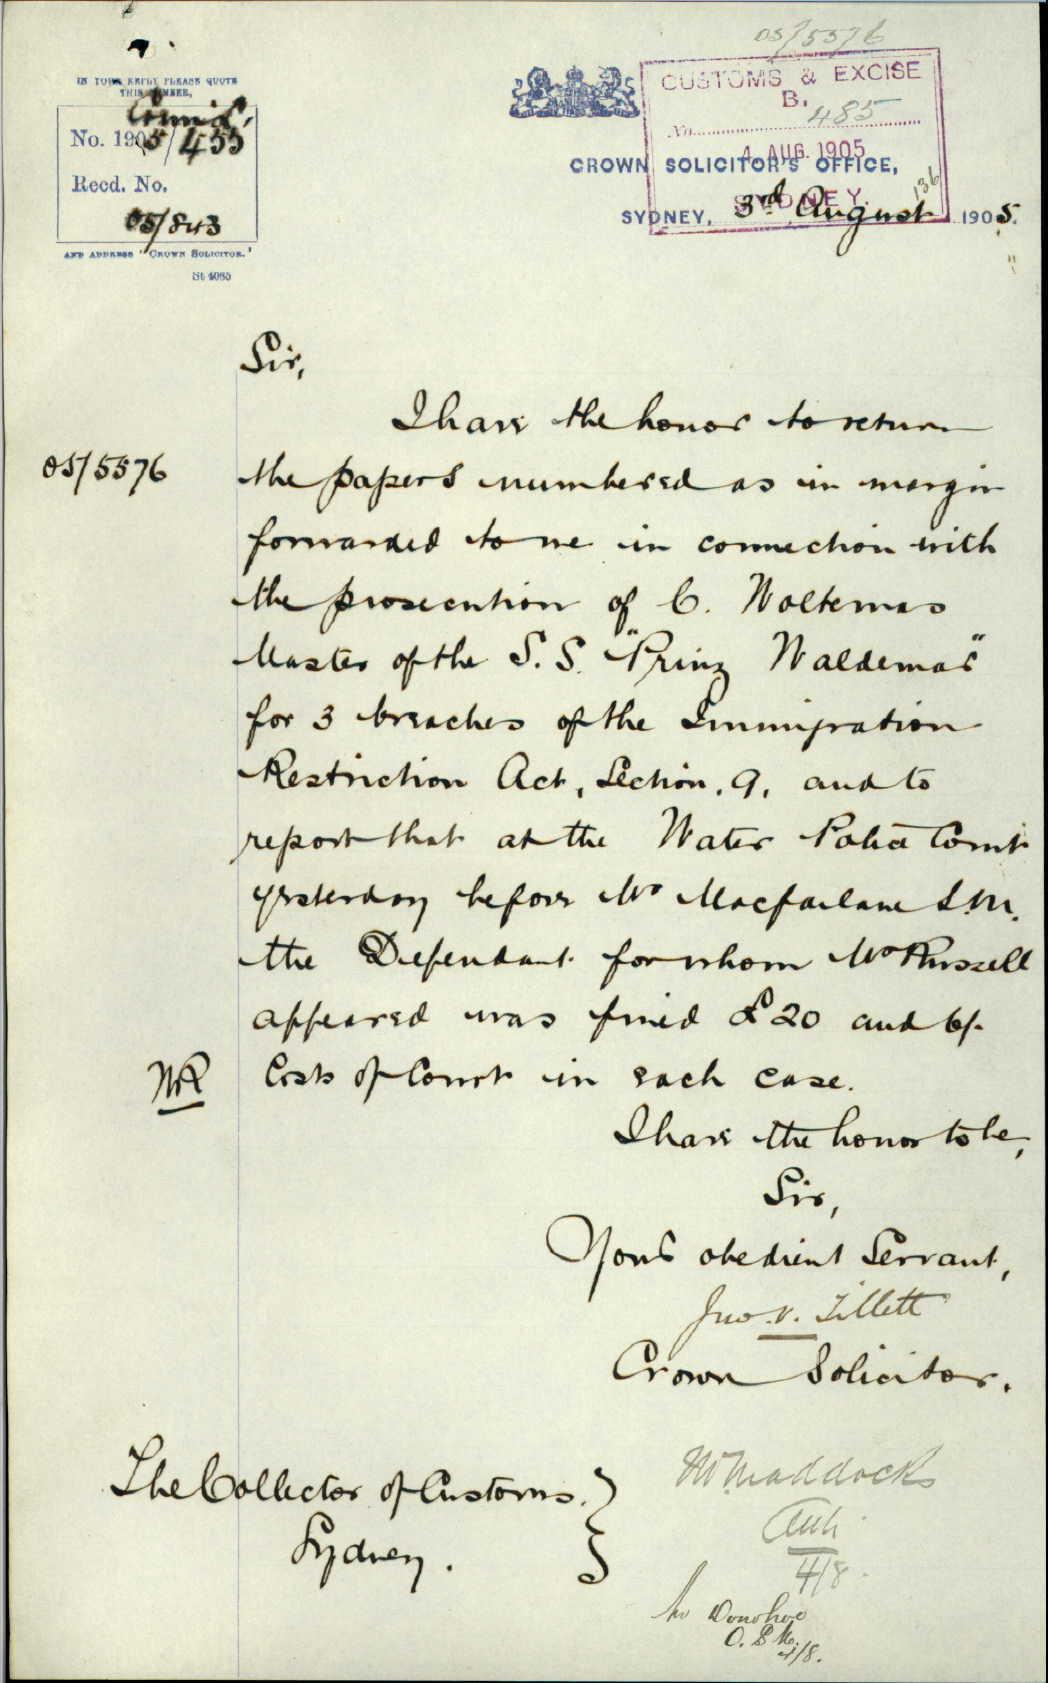 05/5576
IN YOUR REPLY PLEASE QUOTE
THIS NUMBER,
No. 1905/455
Recd. No.
05/843
AND ADDRESS "CROWN SOLICITOR."
St 4085
CUSTOMS & EXCISE
B.
No. 485
4 AUG. 1905
SYDNEY.
CROWN SOLICITOR'S OFFICE,
136
SYDNEY, 3rd August 1905.
Sir,
I have the honor to return
05/5576
the papers numbered as in margin
forwarded to me in connection with
the prosecution of C. Woltemas
Master of the S.S. "Prinz Waldemar"
for 3 breaches of the Immigration
Restriction Act, Section. 9, and to
report that at the Water Police Court
yesterday before Mr Macfarlane S.M.
the Defendant for whom Mr Russell
appeared was fined £20 and 6/-
Costs of Court in each case.
WR
I have the honor to be,
Sir,
Your obedient Servant,
Jno. V. Tillett
Crown Solicitor.
The Collector of Customs.
Sydney.
Mr Maddocks
4/8.
Mr Donohoe
4/8.